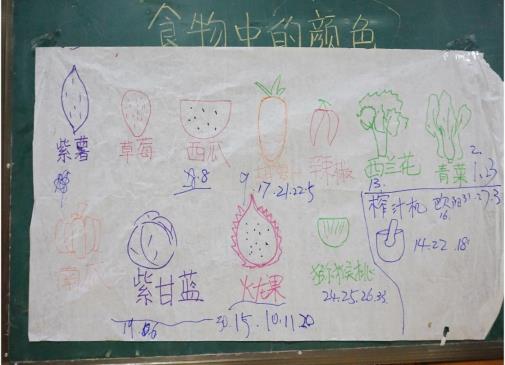 食物中的颜色
紫薯 草莓 西瓜 辣椒 西兰花 青菜
8
17.21.22.5
13.
2.
1.3
榨汁机
27.3
16.
14.22.18
南瓜 紫甘蓝 火龙果 猕猴桃
24.25.26.
15.10.11.20